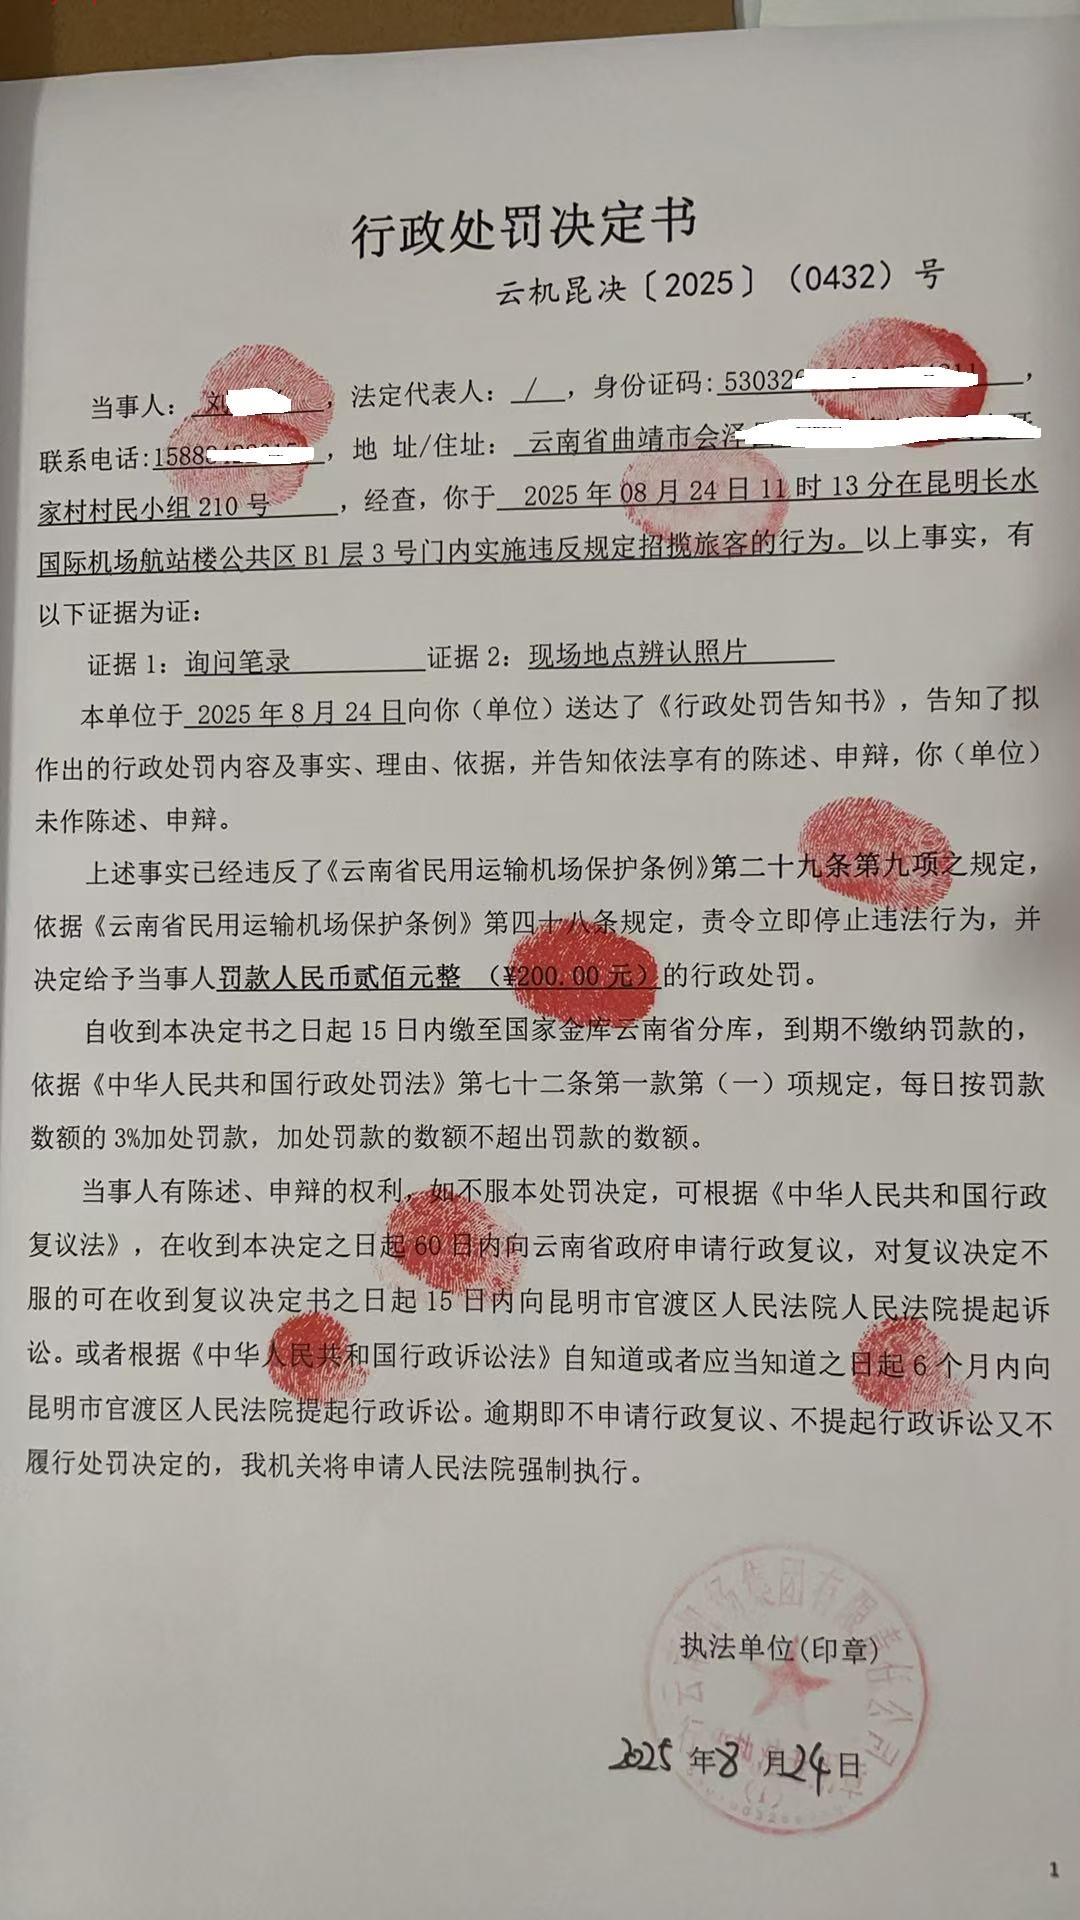 行政处罚决定书
云机昆决〔2025〕(0432)号
当事人: 刘 , 法定代表人: / , 身份证码: 53032 ,
联系电话:1588 , 地 址/住址: 云南省曲靖市会泽
家村村民小组 210 号 , 经查, 你于 2025 年 08 月 24 日 11 时 13 分在昆明长水
国际机场航站楼公共区 B1 层 3 号门内实施违反规定招揽旅客的行为。以上事实, 有
以下证据为证:
证据 1: 询问笔录 证据 2: 现场地点辨认照片
本单位于 2025 年 8 月 24 日向你(单位)送达了《行政处罚告知书》, 告知了拟
作出的行政处罚内容及事实、理由、依据, 并告知依法享有的陈述、申辩, 你(单位)
未作陈述、申辩。
上述事实已经违反了《云南省民用运输机场保护条例》第二十九条第九项之规定,
依据《云南省民用运输机场保护条例》第四十八条规定, 责令立即停止违法行为, 并
决定给予当事人罚款人民币贰佰元整 (¥200.00 元)的行政处罚。
自收到本决定书之日起 15 日内缴至国家金库云南省分库, 到期不缴纳罚款的,
依据《中华人民共和国行政处罚法》第七十二条第一款第(一)项规定, 每日按罚款
数额的 3%加处罚款, 加处罚款的数额不超出罚款的数额。
当事人有陈述、申辩的权利, 如不服本处罚决定, 可根据《中华人民共和国行政
复议法》, 在收到本决定之日起 60 日内向云南省政府申请行政复议, 对复议决定不
服的可在收到复议决定书之日起 15 日内向昆明市官渡区人民法院人民法院提起诉
讼。或者根据《中华人民共和国行政诉讼法》自知道或者应当知道之日起 6 个月内向
昆明市官渡区人民法院提起行政诉讼。逾期即不申请行政复议、不提起行政诉讼又不
履行处罚决定的, 我机关将申请人民法院强制执行。
云 机场集团有限责任公司
执法单位(印章)
2025 年 8 月 24 日
1